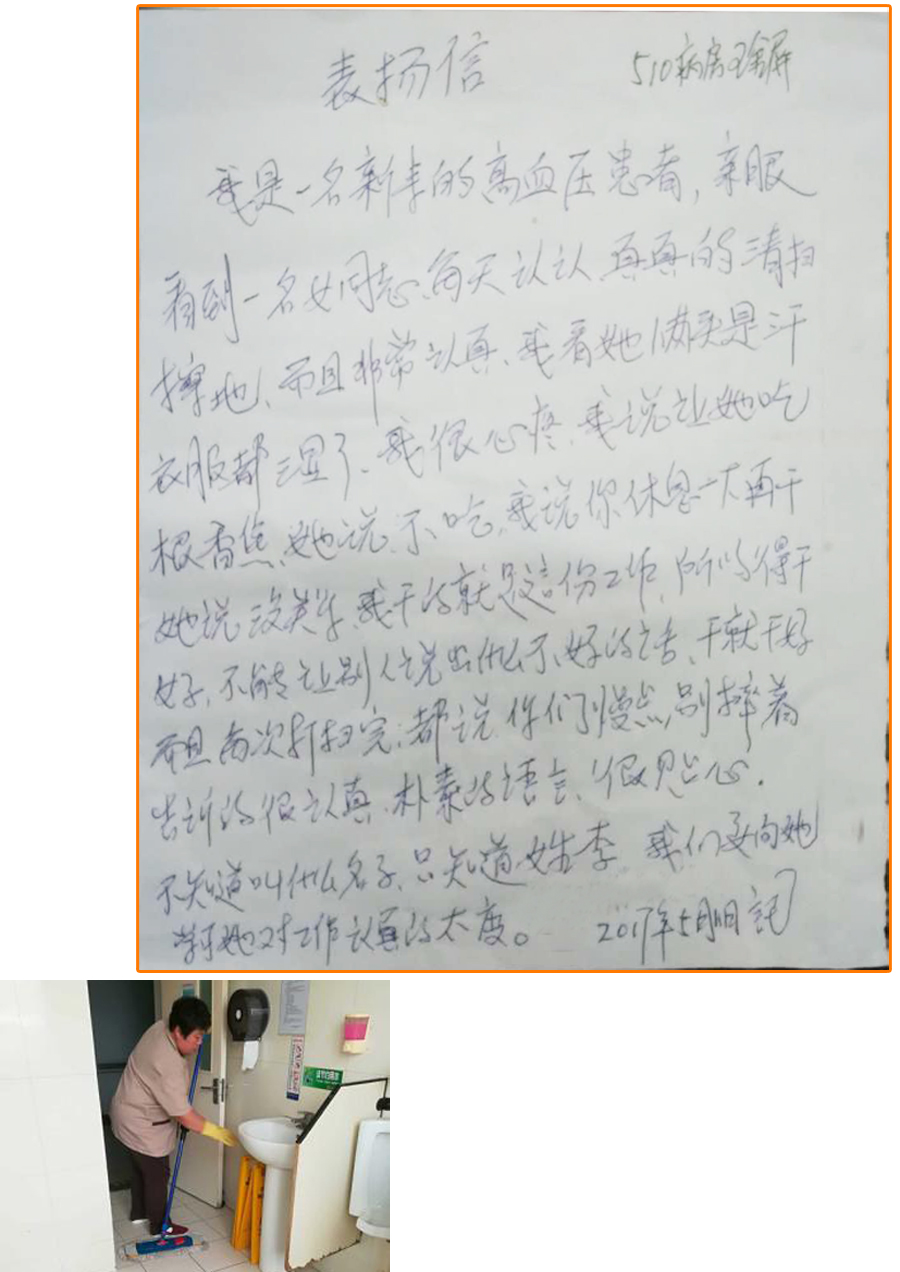 表扬信
510病房
我是一名新来的高血压患者,亲眼
看到一名女同志、每天认认真真的清扫
擦地、而且非常认真、我看她满头是汗
衣服都湿了、我很心疼、我说让她吃
根香焦,她说、不吃,我说你休息一下再干
她说没关系,我干的就是這份工作,所以得干
好,不能让别人说出什么不好的话、干就干好
而且每次打扫完,都说你们慢点,别摔着
告诉的很认真、朴素的语言、很贴心.
不知道叫什么名子,只知道姓李 我们要向她
学习她对工作认真的太度。 2017年5月 記